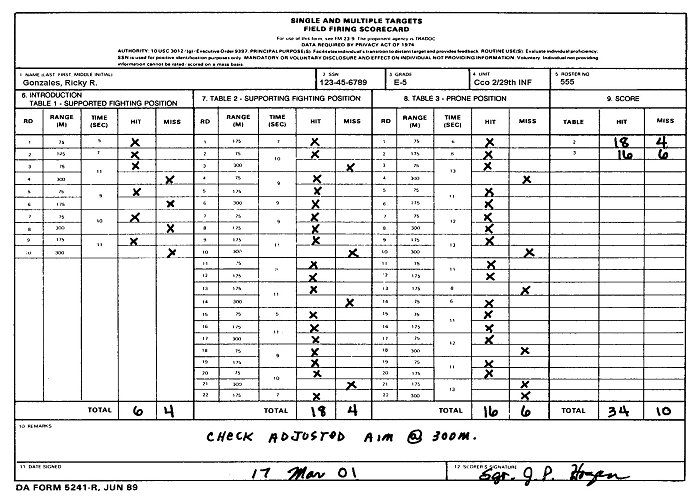 SINGLE AND MULTIPLE TARGETS
FIELD FIRING SCORECARD
For use of this form, see FM 23-9. The proponent agency is TRADOC
DATA REQUIRED BY PRIVACY ACT OF 1974
AUTHORITY: 10 USC 3012(g)/Executive Order 9397. PRINCIPAL PURPOSE(S): Facilitates individual's transition to distant target and provides feedback. ROUTINE USE(S): Evaluate individual proficiency.
SSN is used for positive identification purposes only. MANDATORY OR VOLUNTARY DISCLOSURE AND EFFECT ON INDIVIDUAL NOT PROVIDING INFORMATION: Voluntary. Individual not providing
information cannot be rated/scored on a mass basis.
1 NAME (LAST, FIRST, MIDDLE INITIAL) 2 SSN 3 GRADE 4 UNIT 5 ROSTER NO
Gonzales, Ricky R. 123-45-6789 E-5 Cco 2/29th INF 555
6. INTRODUCTION 7. TABLE 2 - SUPPORTING FIGHTING POSITION 8. TABLE 3 - PRONE POSITION 9. SCORE
TABLE 1 - SUPPORTED FIGHTING POSITION
RD RANGE (M) TIME (SEC) HIT MISS RD RANGE (M) TIME (SEC) HIT MISS RD RANGE (M) TIME (SEC) HIT MISS TABLE HIT MISS
1 75 5 X 1 175 7 X 1 75 6 X 2 18 4
2 175 7 X 2 75 10 X 2 175 8 X 3 16 6
3 75 11 X 3 300 X 3 75 13 X
4 300 X 4 75 9 X 4 300 X
5 75 9 X 5 175 X 5 75 11 X
6 175 X 6 300 9 X 6 175 X
7 75 10 X 7 75 9 X 7 75 12 X
8 300 X 8 175 X 8 300 X
9 175 11 X 9 175 11 X 9 175 13 X
10 300 X 10 300 X 10 300 X
11 75 X 11 75 11 X
12 175 X 12 175 X
13 175 11 X 13 175 8 X
14 300 X 14 75 6 X
15 75 5 X 15 75 11 X
16 175 X 16 175 X
17 175 X 17 175 12 X
18 75 9 X 18 300 X
19 175 X 19 75 11 X
20 75 10 X 20 175 X
21 300 X 21 75 13 X
22 175 7 X 22 300 X
TOTAL 6 4 TOTAL 18 4 TOTAL 16 6 TOTAL 34 10
10 REMARKS
CHECK ADJUSTED AIM @ 300M.
11 DATE SIGNED 12 SCORER'S SIGNATURE
17 Mar 01 Sgt. J.P. Hogan
DA FORM 5241-R, JUN 89